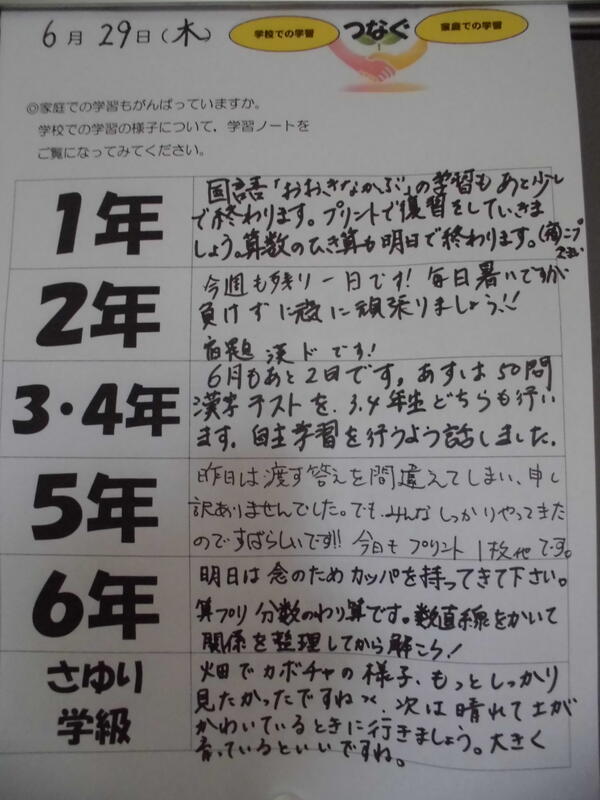 6月29日(木)
学校での学習
つなぐ
家庭での学習
◎家庭での学習もがんばっていますか。
学校での学習の様子について，学習ノートを
ご覧になってみてください。
1年
国語「おおきなかぶ」の学習もあと少し
で終わります。プリントで復習をしていきま
しょう。算数のひき算も明日で終わります。
2年
今週も残り一日です！毎日暑いですが
負けずに 頑張りましょう!!
宿題 漢ドです！
3・4年
6月もあと2日です。あすは50問
漢字テストを、3.4年生どちらも行い
ます。自主学習を行うよう話しました。
5年
昨日は渡す答えを間違えてしまい、申し
訳ありませんでした。でも、みんなしっかりやってきた
のですばらしいです!! 今日もプリント1枚他です。
6年
明日は念のためカッパを持ってきて下さい。
算プリ 分数のわり算です。数直線をかいて
関係を整理してから解こう！
さゆり
学級
畑でカボチャの様子、もっとしっかり
見たかったですね 次は晴れて土が
かわいているときに行きましょう。大きく
育っているといいですね。